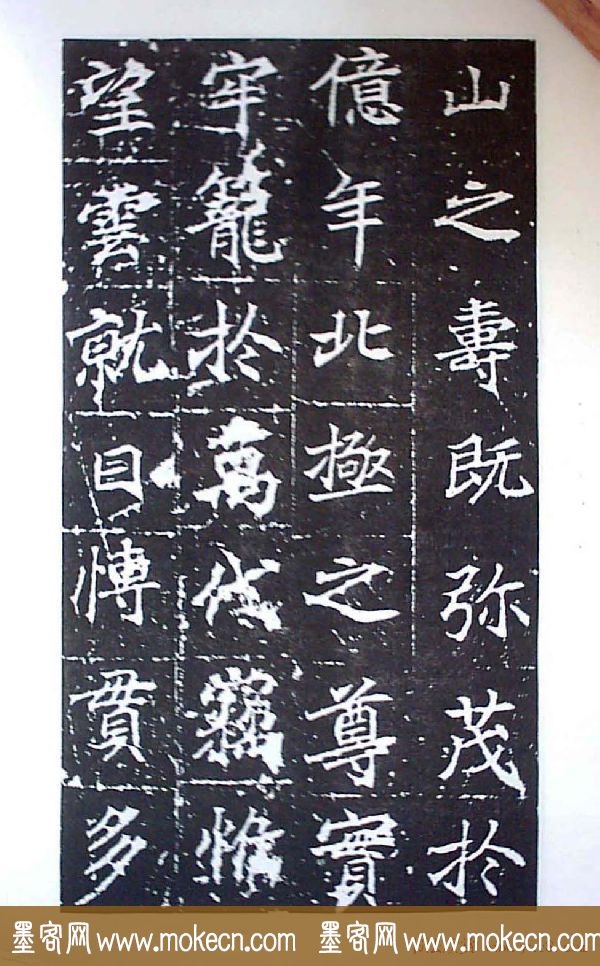 山之壽既弥茂於
億年北極之尊實
牢籠於萬代竊惟
望雲就日博貫多
墨客网 www.mokecn.com 墨客网 www.mokecn.com